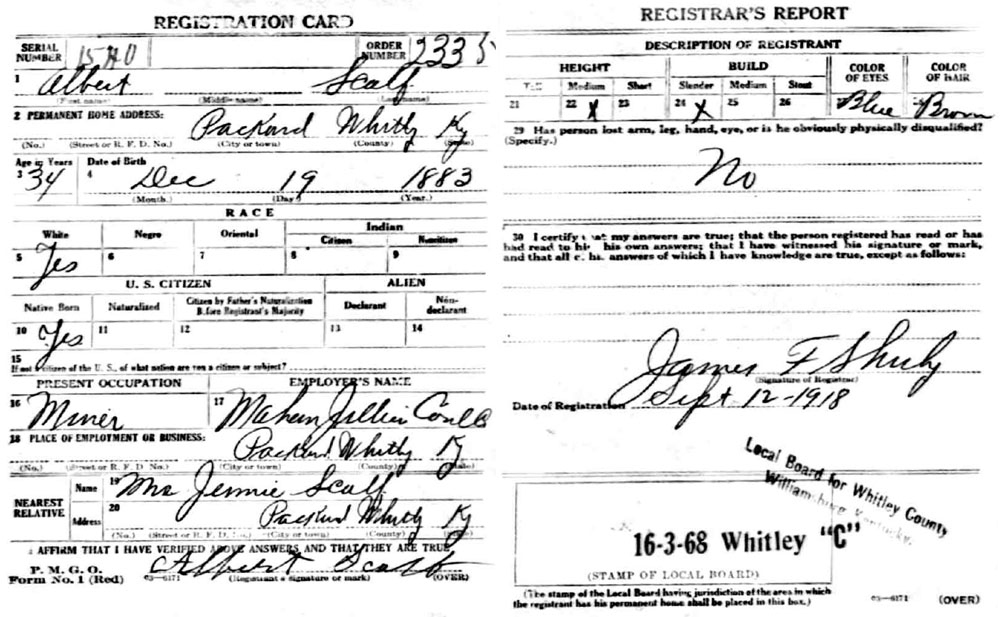 REGISTRATION CARD
SERIAL NUMBER 1540 ORDER NUMBER 2335
1 Albert Scalf
(First name) (Middle name) (Last name)
2 PERMANENT HOME ADDRESS: Packard Whitly Ky
(No.) (Street or R. F. D. No.) (City or town) (County) (State)
Age in Years Date of Birth
3 34 4 Dec 19 1883
(Month.) (Day) (Year.)
RACE
White Negro Oriental Indian
Citizen
5 Yes 6 7 8 9
U. S. CITIZEN ALIEN
Native Born Naturalized Citizen by Father's Naturalization Before Registrant's Majority Declarant Non-declarant
10 Yes 11 12 13 14
15
If not a citizen of the U. S., of what nation are you a citizen or subject?
PRESENT OCCUPATION EMPLOYER'S NAME
16 Miner 17 Mahan Jellico
18 PLACE OF EMPLOYMENT OR BUSINESS: Packard Whitly Ky
(No.) (Street or R. F. D. No.) (City or town) (County) (State)
NEAREST RELATIVE Name 19 Mrs Jennie Scalf
Address 20 Packard Whitly Ky
(No.) (Street or R. F. D. No.) (City or town) (County) (State)
I AFFIRM THAT I HAVE VERIFIED ABOVE ANSWERS AND THAT THEY ARE TRUE
P. M. G. O.
Form No. 1 (Red) 03—6171 Albert Scalf
(Registrant's signature or mark) (OVER)
REGISTRAR'S REPORT
DESCRIPTION OF REGISTRANT
HEIGHT BUILD COLOR OF EYES COLOR OF HAIR
Tall Medium Short Slender Medium Stout
21 22 X 23 24 X 25 26 27 Blue 28 Brown
29 Has person lost arm, leg, hand, eye, or is he obviously physically disqualified?
(Specify.)
No
30 I certify that my answers are true; that the person registered has read or has
had read to him his own answers; that I have witnessed his signature or mark,
and that all of his answers of which I have knowledge are true, except as follows:
James F
(Signature of Registrar)
Date of Registration Sept 12-1918
Local Board for Whitley County
Williamsburg, Kentucky.
16-3-68 Whitley "C"
(STAMP OF LOCAL BOARD)
(The stamp of the Local Board having jurisdiction of the area in which
the registrant has his permanent home shall be placed in this box.)
03—6171 (OVER)